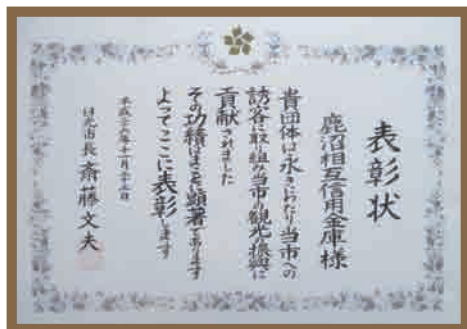 表彰状
鹿沼相互信用金庫様
貴団体は永きにわたり当市への
誘客に取り組み当市の観光振興に
貢献されました
その功績はまことに顕著であります
よってここに表彰します
平成二六年十一月
日光市長 斎藤文夫